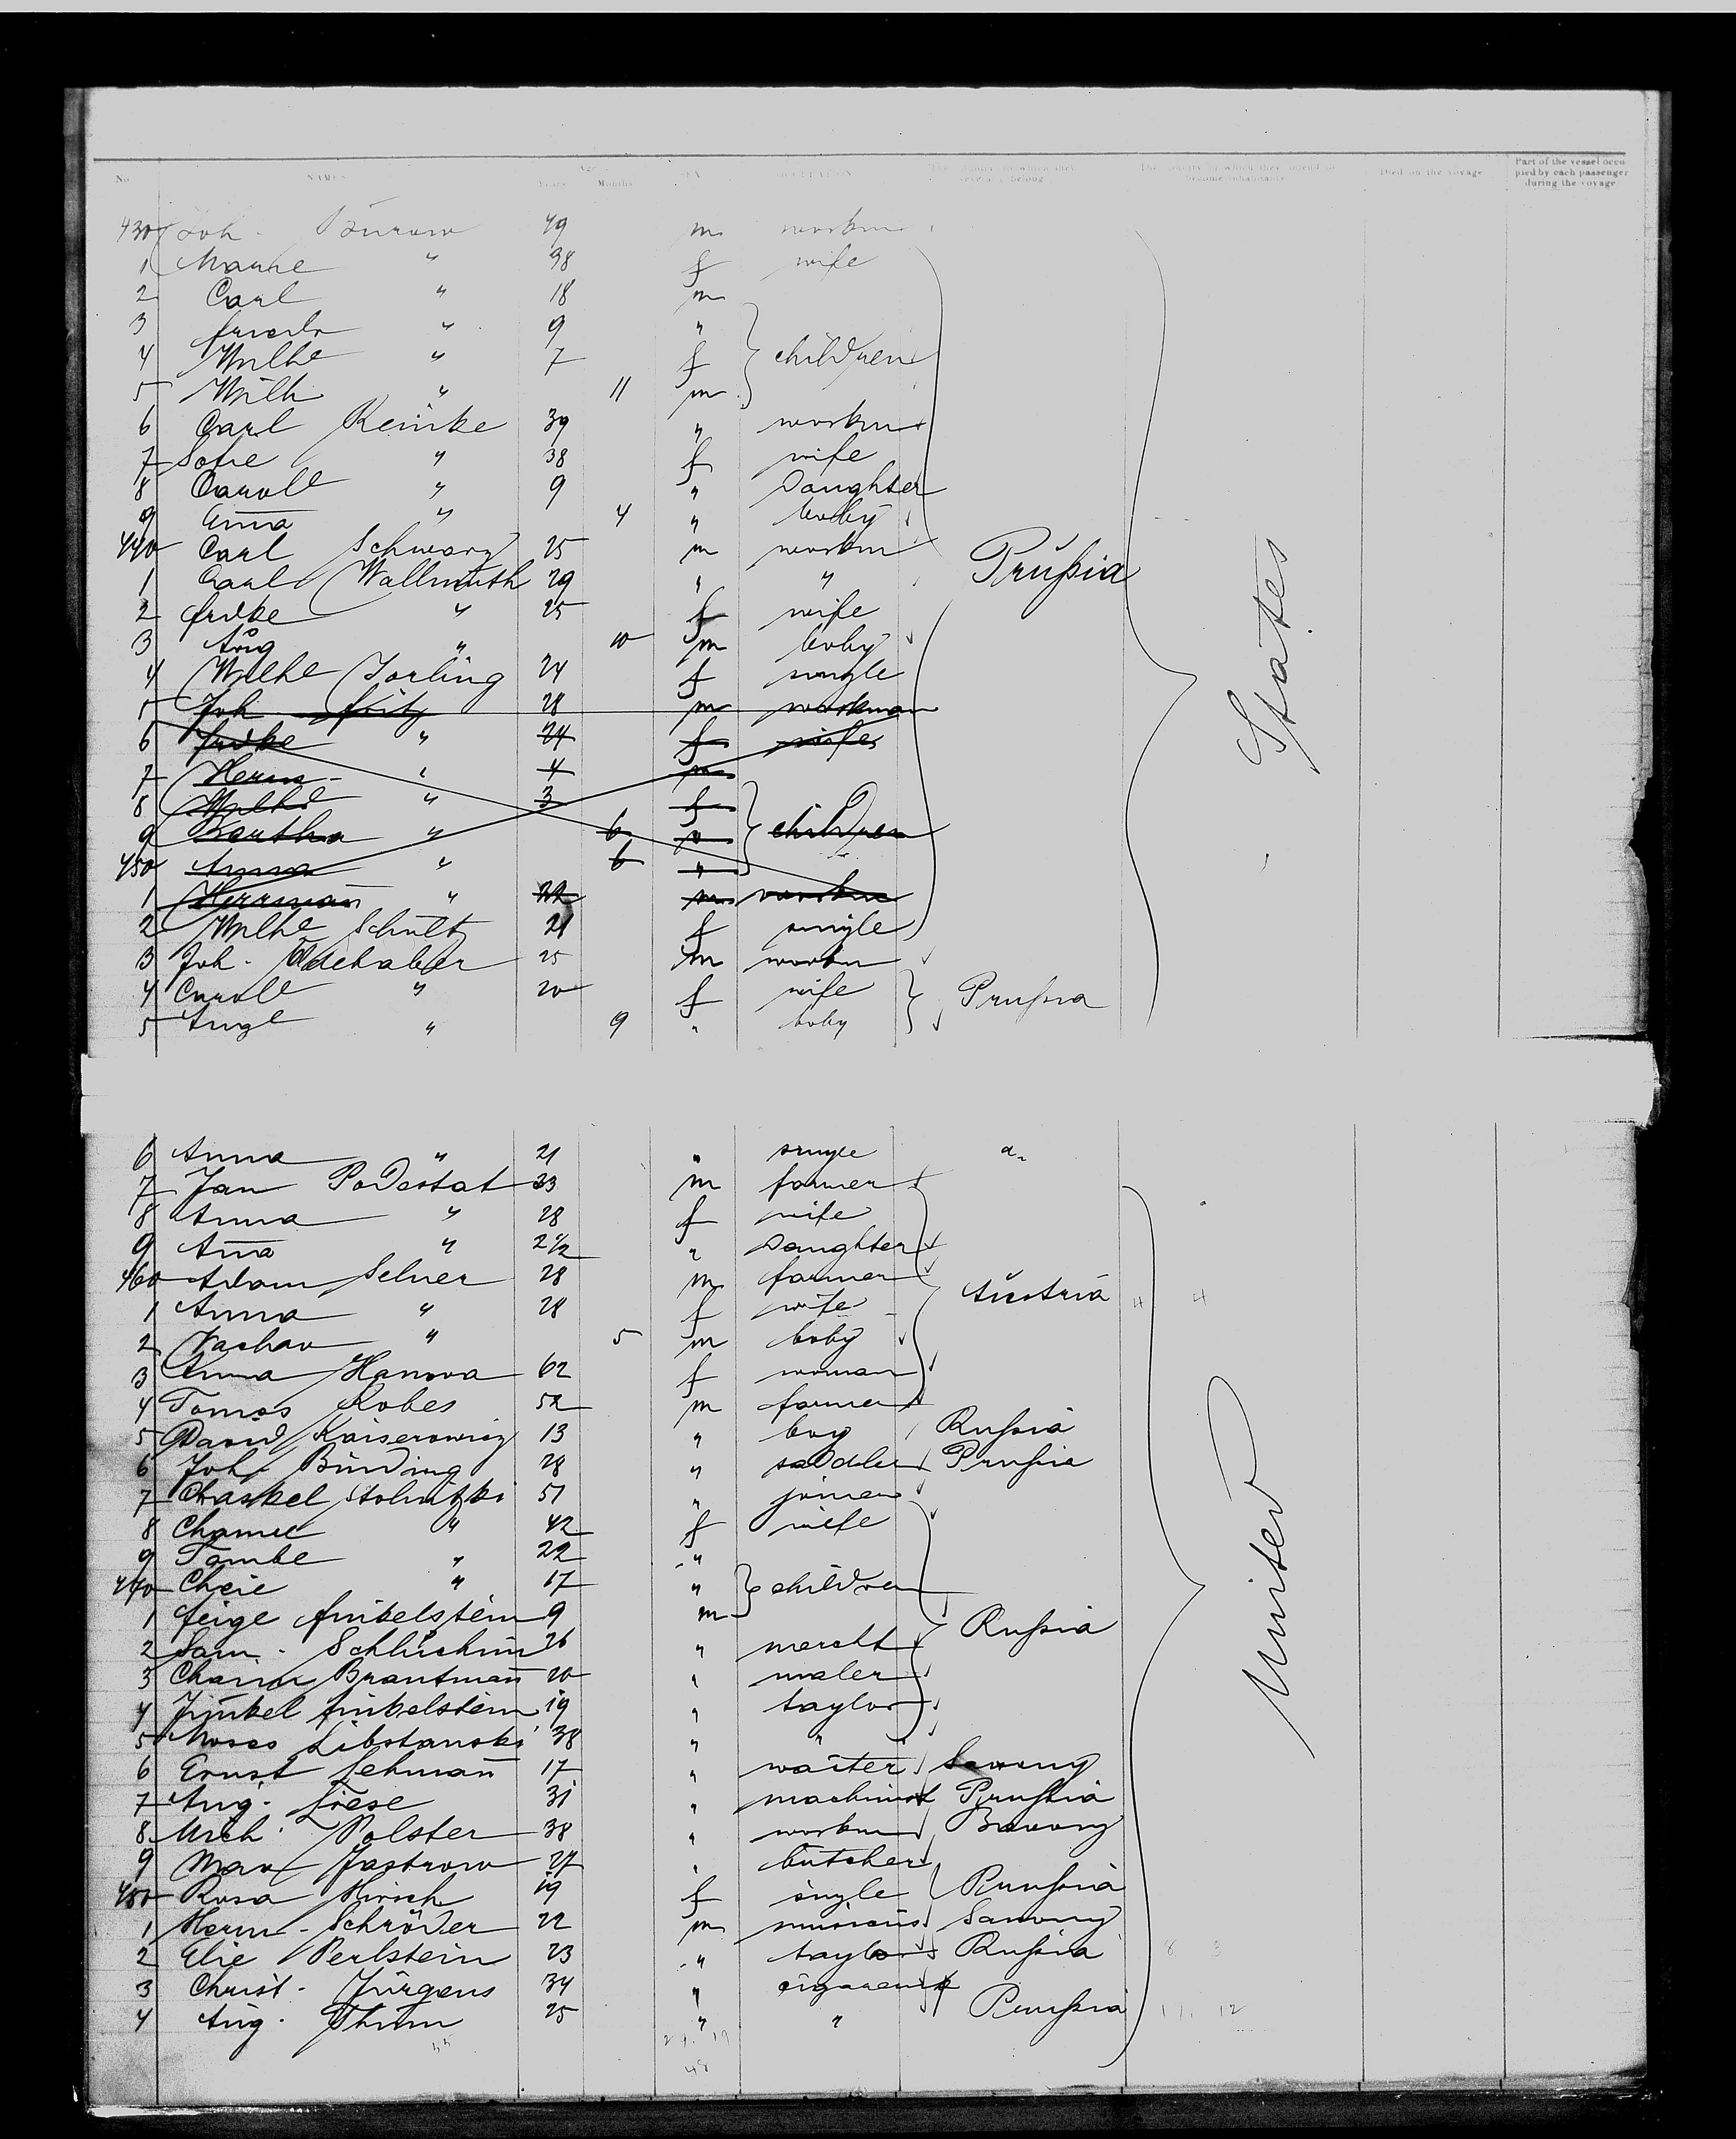 No. NAMES Age Years Months SEX OCCUPATION The country to which they severally belong The country of which they intend to become inhabitants Died on the voyage Part of the vessel occupied by each passenger during the voyage
430 Joh. Burow 49 m workm
1 Marie " 38 f wife
2 Carl " 18 m
3 " 9 "
4 Wilhe " 7 f children
5 Wilh " 11 m
6 Carl Reinke 39 " workm
7 Sofie " 38 f wife
8 Carole " 9 " Daughter
9 Anna " 4 " boby
440 Carl Schwarz 25 m workm Prußia
1 Carl Wallmuth 29 " "
2 frdke " 25 f wife
3 Aug " 10 m boby
4 Wilhe Jorling 24 f single
5 Joh fritz 28 m workman
6 frdke " 24 f wife
7 Herm " 4 m
8 Wilhe " 3 f
9 Bertha " 6 " children
450 Anna " 6 "
1 Herrmann " 22 m workm
2 Wilhe Schultz 21 f single
3 Joh. 25 m workm
4 Carole " 20 f wife Prußia
5 Auge " 9 " boby
States
6 Anna " 21 " single
7 Jan Podestat 33 m farmer
8 Anna " 28 f wife
9 Anna " 2 1/2 " Daughter
460 Adam Selner 28 m farmer Austria
1 Anna " 28 f wife
2 Vachav " 5 m boby
3 Anna Hanova 62 f woman
4 Tomas Kobes 52 m farmer
5 David Kaiserowicz 13 " boy Rußia
6 Joh. Bünding 28 " saddler Prußia
7 Chaskel Stolnitzki 51 " joiner
8 Chamie " 42 f wife
9 Tambe " 22 "
470 Cheie " 17 " children
1 feige finkelstein 9 m Rußia
2 Sam. Schluchin 26 " mercht
3 Chaim Brantmann 20 " maler
4 Junkel finkelstein 19 " taylor
5 Moses Libstanski 38 " "
6 Ernst Lehmann 17 " waiter Saxony
7 Aug. Liese 31 " machinist Prußia
8 Mich. Polster 38 " workm
9 Max Jastrow 27 " butcher
480 Rosa Hirsch 19 f single Prußia
1 Herm. Schröder 22 m musicus Saxony
2 Elie Perlstein 23 " taylor Rußia
3 Christ. Jürgens 34 "
4 Aug. Thum 25 " " Prußia
United